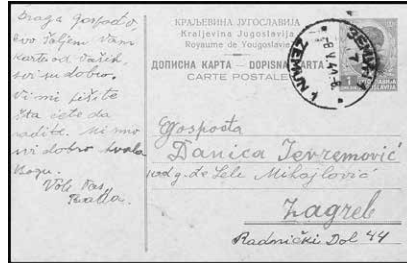 Draga gospođo,
evo šaljem Vam
kartu od Vaših,
svi su dobro.
Vi mi pišite
šta ćete da
radite. Mi smo
svi dobro hvala
Bogu.
Voli Vas,
КРАЉЕВИНА ЈУГОСЛАВИЈА
Kraljevina Jugoslavija
Royaume de Yougoslavie
ДОПИСНА КАРТА — DOPISNA KARTA
CARTE POSTALE
ZEMUN 1
-8.V.41
ЗЕМУН
1
Gospođa
Danica Jevremović
kod g. Lele Mihajlović
Zagreb
Radnički Dol 44